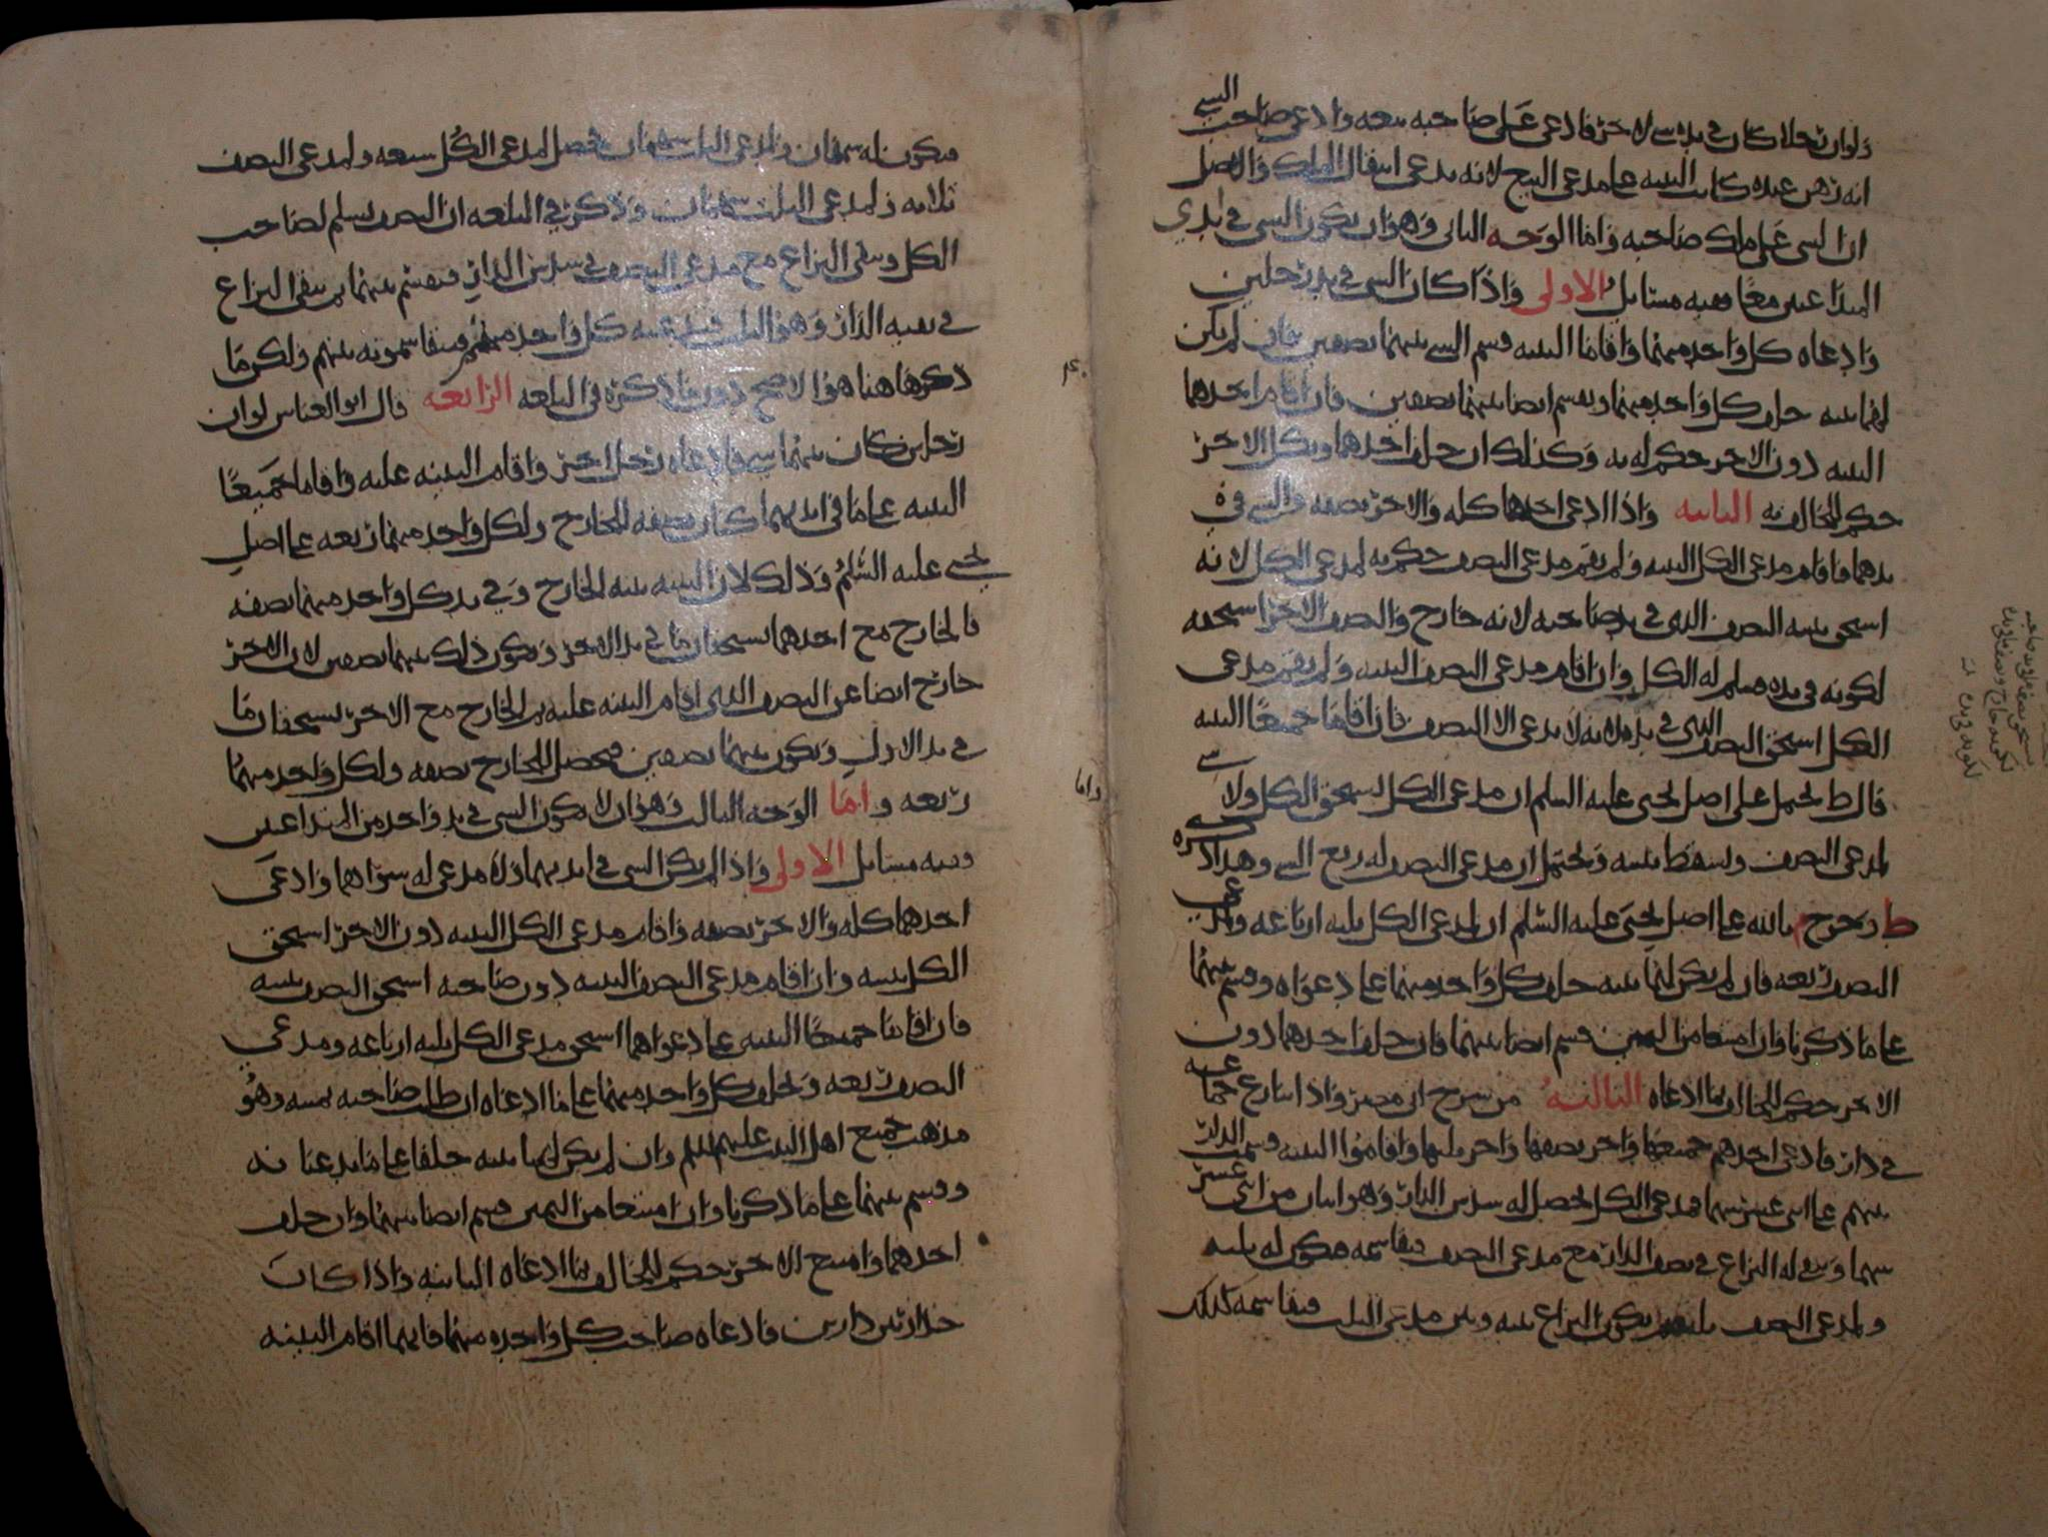 ولو ان رجلا كان في يده شي لاخر فادعى على صاحبه بيعه وادعى صاحب الشي
انه رهن عنده كانت البينه على مدعي البيع لانه يدعي انتقال الملك والاصل
ان الشي على ملك صاحبه واما الوجه الثاني وهو ان يكون الشي في ايدي
المتداعيين معًا ففيه مسايل الاولى واذا كان الشي في يد رجلين
وادعاه كل واحد منهما واقاما البينه قسم الشي بينهما نصفين فان لم يكن
لهما بينه حلف كل واحد منهما ويقسم ايضا بينهما نصفين فان اقام احدهما
البينه دون الاخر حكم له به وكذلك ان حلف احدهما ونكل الاخر
حكم للحالف به الثانيه واذا ادعى احدهما كله والاخر نصفه والشي في
يدهما فاقام مدعي الكل البينه ولم يقم مدعي النصف حكم به لمدعي الكل لانه
استحق ببينته النصف الذي في يد صاحبه لانه خارج والنصف الاخر استحقه
لكونه في يده فسلم له الكل وان اقام مدعي النصف البينه ولم يقم مدعي
الكل استحق النصف الذي في يده لانه لا يدعي الا النصف فان اقاما جميعًا البينه
قال ط يحتمل على اصل يحيى عليه السلم ان مدعي الكل يستحق الكل ولا شي
لمدعي النصف وتسقط بينته ويحتمل ان مدعي النصف له ربع الشي وهذا ذكره
ط وخرج م بالله على اصل يحيى عليه السلم ان لمدعي الكل ثلثه ارباعه ولمدعي
النصف ربعه فان لم يكن لهما بينه حلف كل واحد منهما على دعواه وقسم بينهما
على ما ذكرنا وان امتنعا من اليمين قسم ايضا بينهما فان حلف احدهما دون
الاخر حكم للحالف بما ادعاه الثالثه من شرح ابي مضر واذا تنازع جماعه
في دار فادعى احدهم جميعها واخر نصفها واخر ثلثها واقاموا البينه قسمت الدار
بينهم على اثني عشر سهما فمدعي الكل يحصل له سدس الدار وهو اثنان من اثني عشر
سهما وبقي له النزاع في نصف الدار مع مدعي النصف فيقاسمه فيكون له ثلثه
ولمدعي النصف ثلثه ثم يكون النزاع بينه وبين مدعي الثلث فيقاسمه كذلك
فيكون له سهمان ولمدعي الثلث سهمان فحصل لمدعي الكل سبعه ولمدعي النصف
ثلاثه ولمدعي الثلث سهمان وذكر في البلغه ان النصف يسلم لصاحب
الكل وبقي النزاع مع مدعي النصف في سدس الدار فيقسم بينهما ثم يبقى النزاع
في بقيه الدار وهو الثلث فيدعيه كل واحد منهم فيتقاسمونه بينهم ولكن ما
ذكرها هنا هو الاصح دون ما ذكره في البلغه الرابعه قال ابو العباس لو ان
رجلين كان بينهما شي فادعاه رجل اخر واقام البينه عليه واقاما جميعًا
البينه على ما في ايديهما كان نصفه للخارج ولكل واحد منهما ربعه على اصل
يحيى عليه السلم وذلك لان البينه بينه الخارج وفي يد كل واحد منهما نصفه
فالخارج مع احدهما يستحقان ما في يد الاخر ويكون ذلك بينهما نصفين لان الاخر
خارج ايضا عن النصف الذي اقام البينه عليه ثم الخارج مع الاخر يستحقان ما
في يد الاول ويكون بينهما نصفين فحصل للخارج نصفه ولكل واحد منهما
ربعه واما الوجه الثالث وهو ان لا يكون الشي في يد واحد من المتداعيين
ففيه مسايل الاولى واذا لم يكن الشي في ايديهما ولا مدعي له سواهما وادعى
احدهما كله والاخر نصفه واقام مدعي الكل البينه دون الاخر استحق
الكل ببينته وان اقام مدعي النصف البينه دون صاحبه استحق النصف ببينته
فان اقاما جميعًا البينه على دعواهما استحق مدعي الكل ثلثه ارباعه ومدعي
النصف ربعه ويحلف كل واحد منهما على ما ادعاه ان طلب صاحبه يمينه وهو
مذهب جميع اهل البيت عليهم السلم وان لم يكن لهما بينه حلفا على ما يدعيانه
وقسم بينهما على ما ذكرنا وان امتنعا من اليمين قسم ايضا بينهما وان حلف
احدهما وامتنع الاخر حكم للحالف بما ادعاه الثانيه واذا كان
جدار بين دارين فادعاه صاحب كل واحده منهما فايهما اقام البينه